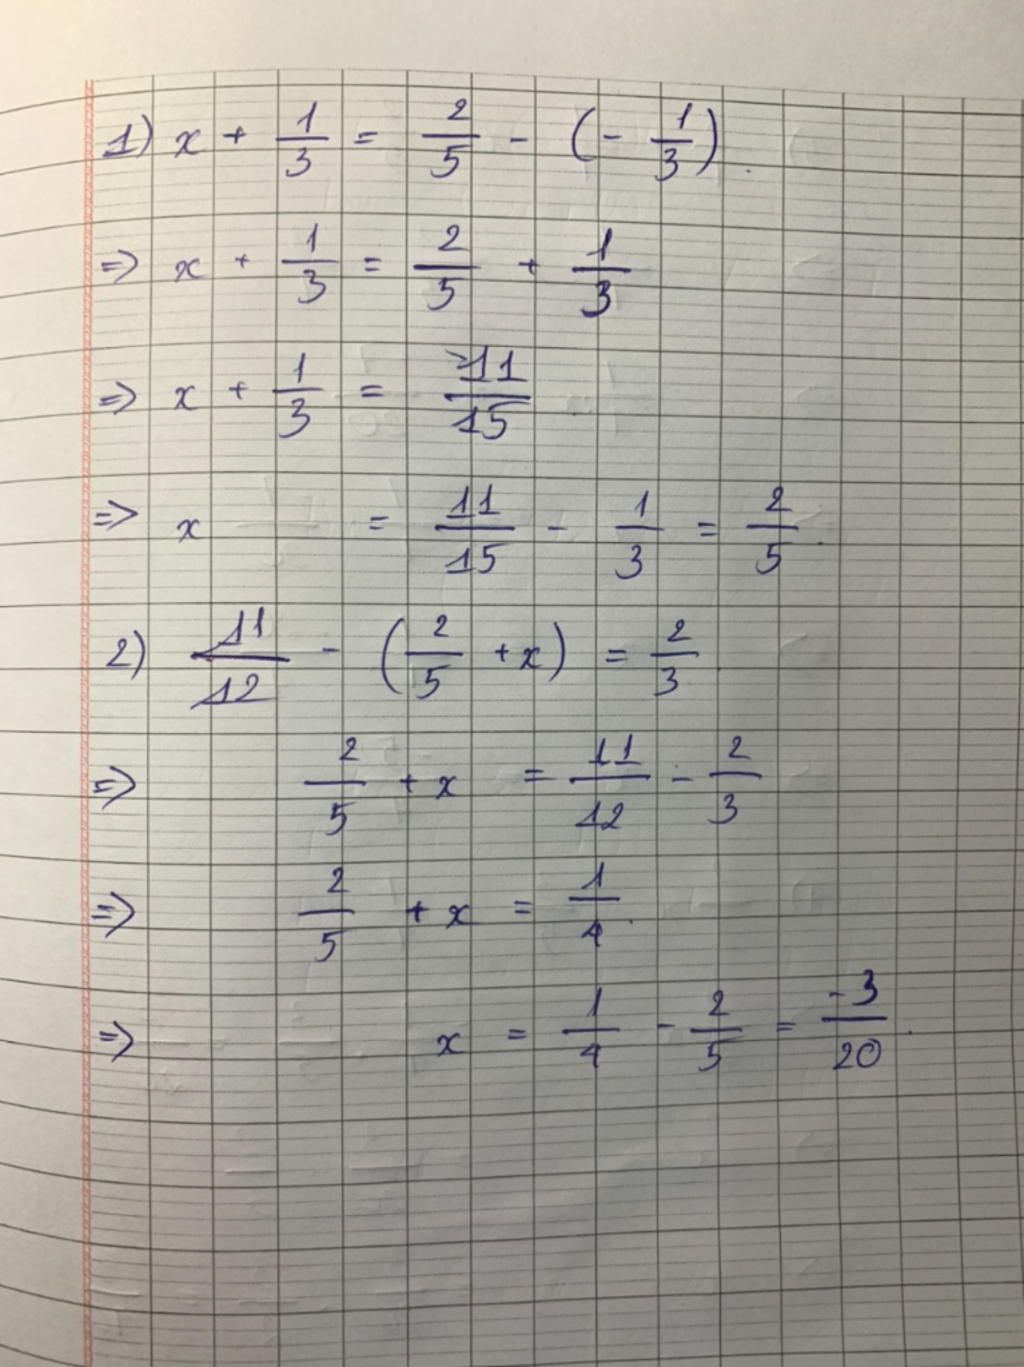 1) x + 1/3 = 2/5 - (- 1/3).
=> x + 1/3 = 2/5 + 1/3
=> x + 1/3 = 11/15
=> x = 11/15 - 1/3 = 2/5.
2) 11/12 - (2/5 + x) = 2/3
=> 2/5 + x = 11/12 - 2/3
=> 2/5 + x = 1/4.
=> x = 1/4 - 2/5 = -3/20.